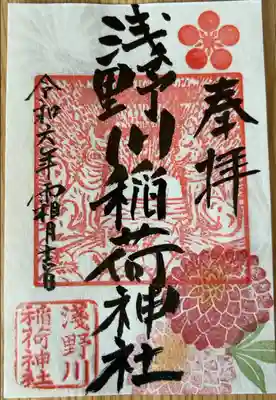 奉拝
浅野川稲荷神社
令和六年霜月
淺野川
稲荷神社